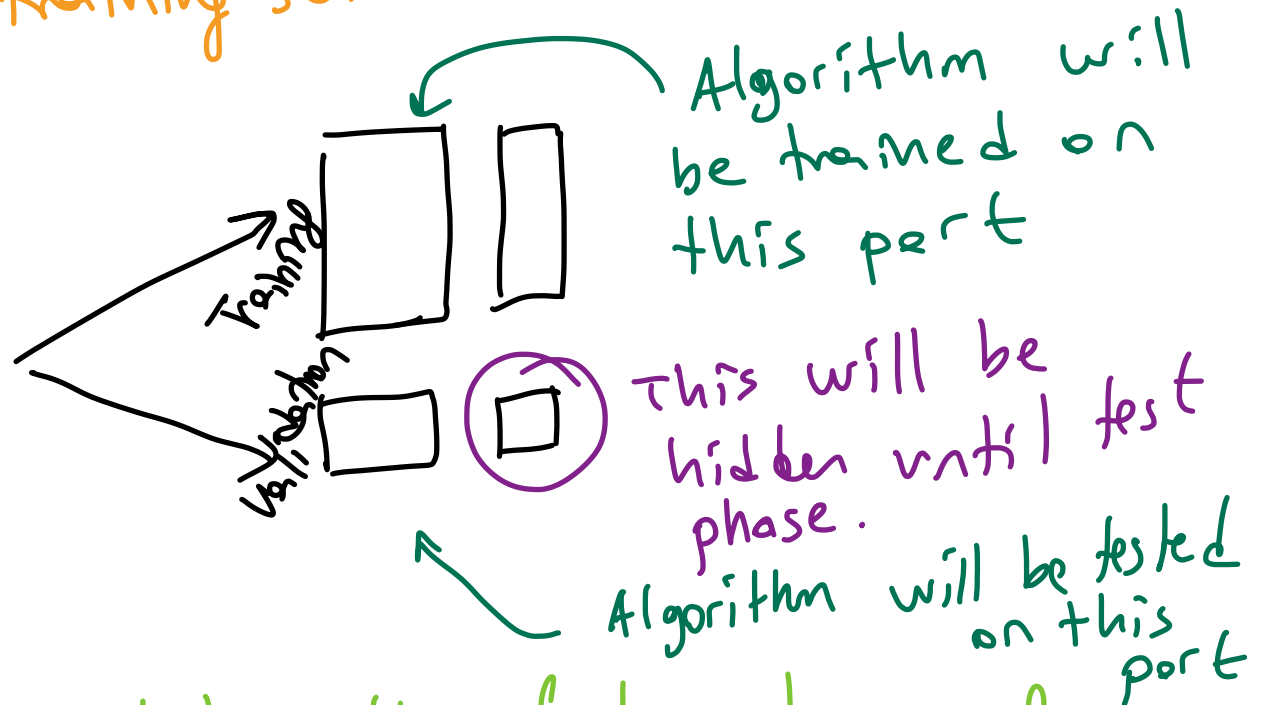 Training
Algorithm will
be trained on
this part
Training
Validation
This will be
hidden until test
phase.
Algorithm will be tested
on this
part